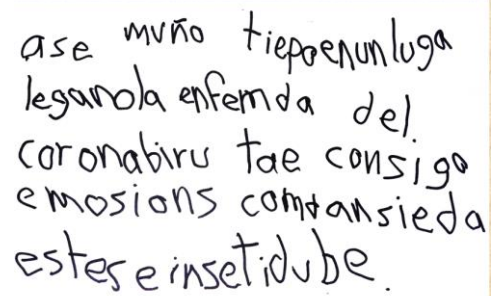 ase muño tiepoenunluga
leganola enfemda del
coronabiru tae consigo
emosions comoansieda
estes e insetidube.